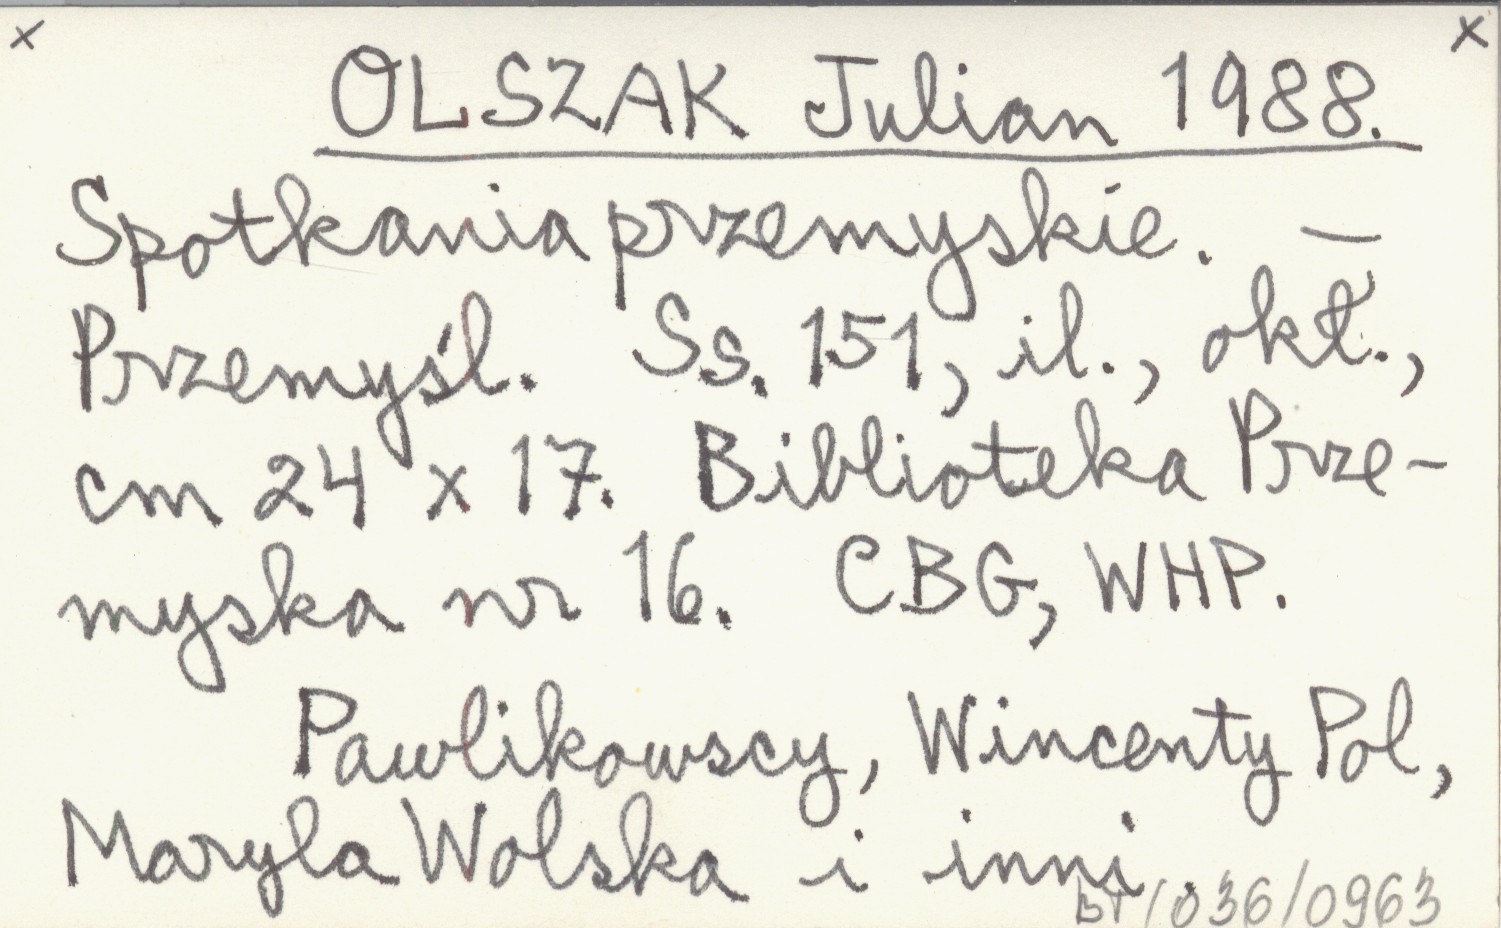 x x
OLSZAK Julian 1988.
Spotkania przemyskie. —
Przemyśl. Ss. 151, il., okł.,
cm 24 x 17. Biblioteka Prze-
myska nr 16. CBG, WHP.
Pawlikowscy, Wincenty Pol,
Maryla Wolska i inni.
BT/036/0963